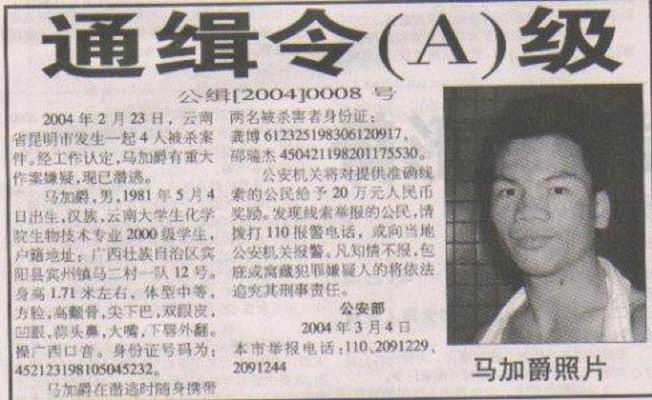 通缉令(A)级
公缉[2004]0008 号
2004 年 2 月 23 日，云南
省昆明市发生一起 4 人被杀案
件。经工作认定，马加爵有重大
作案嫌疑，现已潜逃。
马加爵，男，1981 年 5 月 4
日出生，汉族，云南大学生化学
院生物技术专业 2000 级学生，
户籍地址：广西壮族自治区宾
阳县宾州镇马二村一队 12 号。
身高 1.71 米左右，体型中等，
方脸，高颧骨，尖下巴，双眼皮，
凹眼，蒜头鼻，大嘴，下唇外翻。
操广西口音。身份证号码为：
452123198105045232。
马加爵在潜逃时随身携带
两名被杀害者身份证：
龚博 612325198306120917，
邵瑞杰 450421198201175530。
公安机关将对提供准确线
索的公民给予 20 万元人民币
奖励。发现线索举报的公民，请
拨打 110 报警电话，或向当地
公安机关报警。凡知情不报，包
庇或窝藏犯罪嫌疑人的将依法
追究其刑事责任。
公安部
2004 年 3 月 4 日
本市举报电话：110、2091229、
2091244
马加爵照片